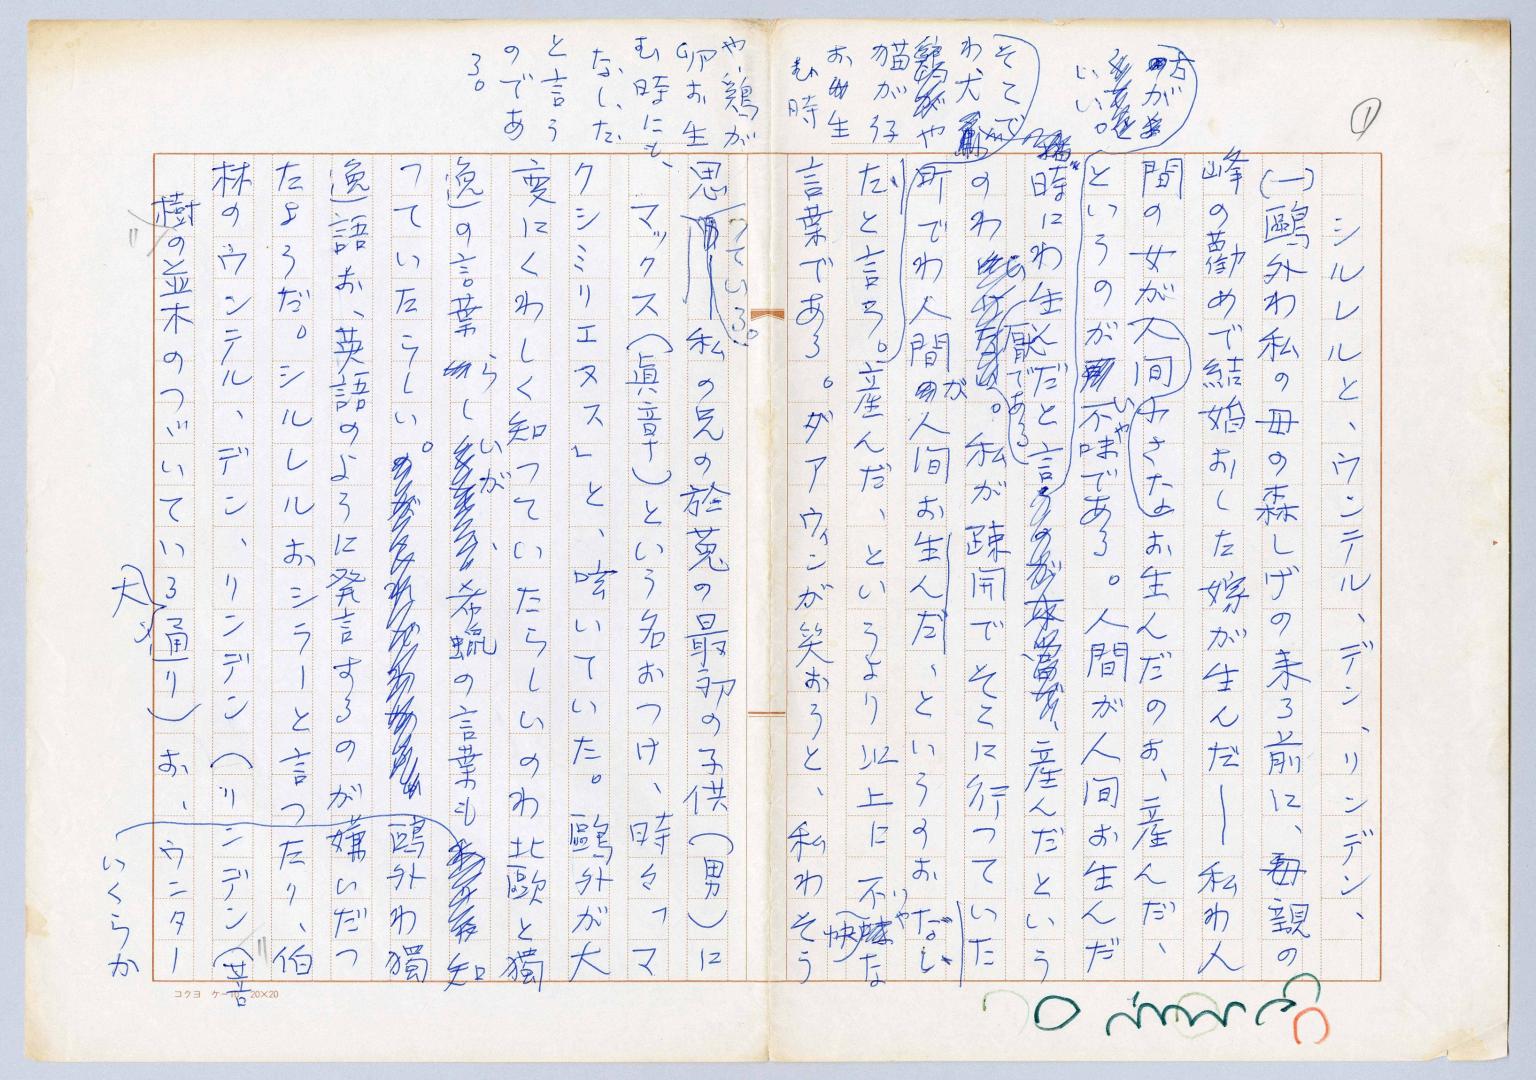 ①
シルレルと、ウンテル、デン、リンデン、
(一)鷗外わ私の母の森しげの来る前に、母親の
峰の勧めで結婚おした嫁が生んだ――私わ人
間の女が人間おさたなお生んだのお、産んだ、
というのが不味である。人間が人間お生んだ
いや
じいい。
時にわ生んだと言う
厭である
産んだという
のわ
。私が疎開でそこに行つていた
所でわ人間が人間お生んだ、というのおなじ
だと言う。産んだ、というより以上に不快な
いや
言葉である。ダアウィンが笑おうと、私わそう
そこで
わ、犬
や
猫が仔
お生
む時
や、鶏が
卵お生
む時にも、
なしだ
と言う
のであ
る。
思つている。
――私の兄の於菟の最初の子供(男)に
マックス(眞章)という名おつけ、時々「マ
クシミリエヌス」と、呟いていた。鷗外が大
変にくわしく知つていたらしいのわ北歐と獨
逸の言葉らしいが、希蠟の言葉も知
つていたらしい。鷗外わ獨
逸語お、英語のように発言するのが嫌いだつ
たようだ。シルレルおシラーと言つたり、伯
林のウンテル、デン、リンデン(リンデン(菩
樹の並木のつづいている通り)お、ウンター
大
いくらか
コクヨ ケ-10 20×20